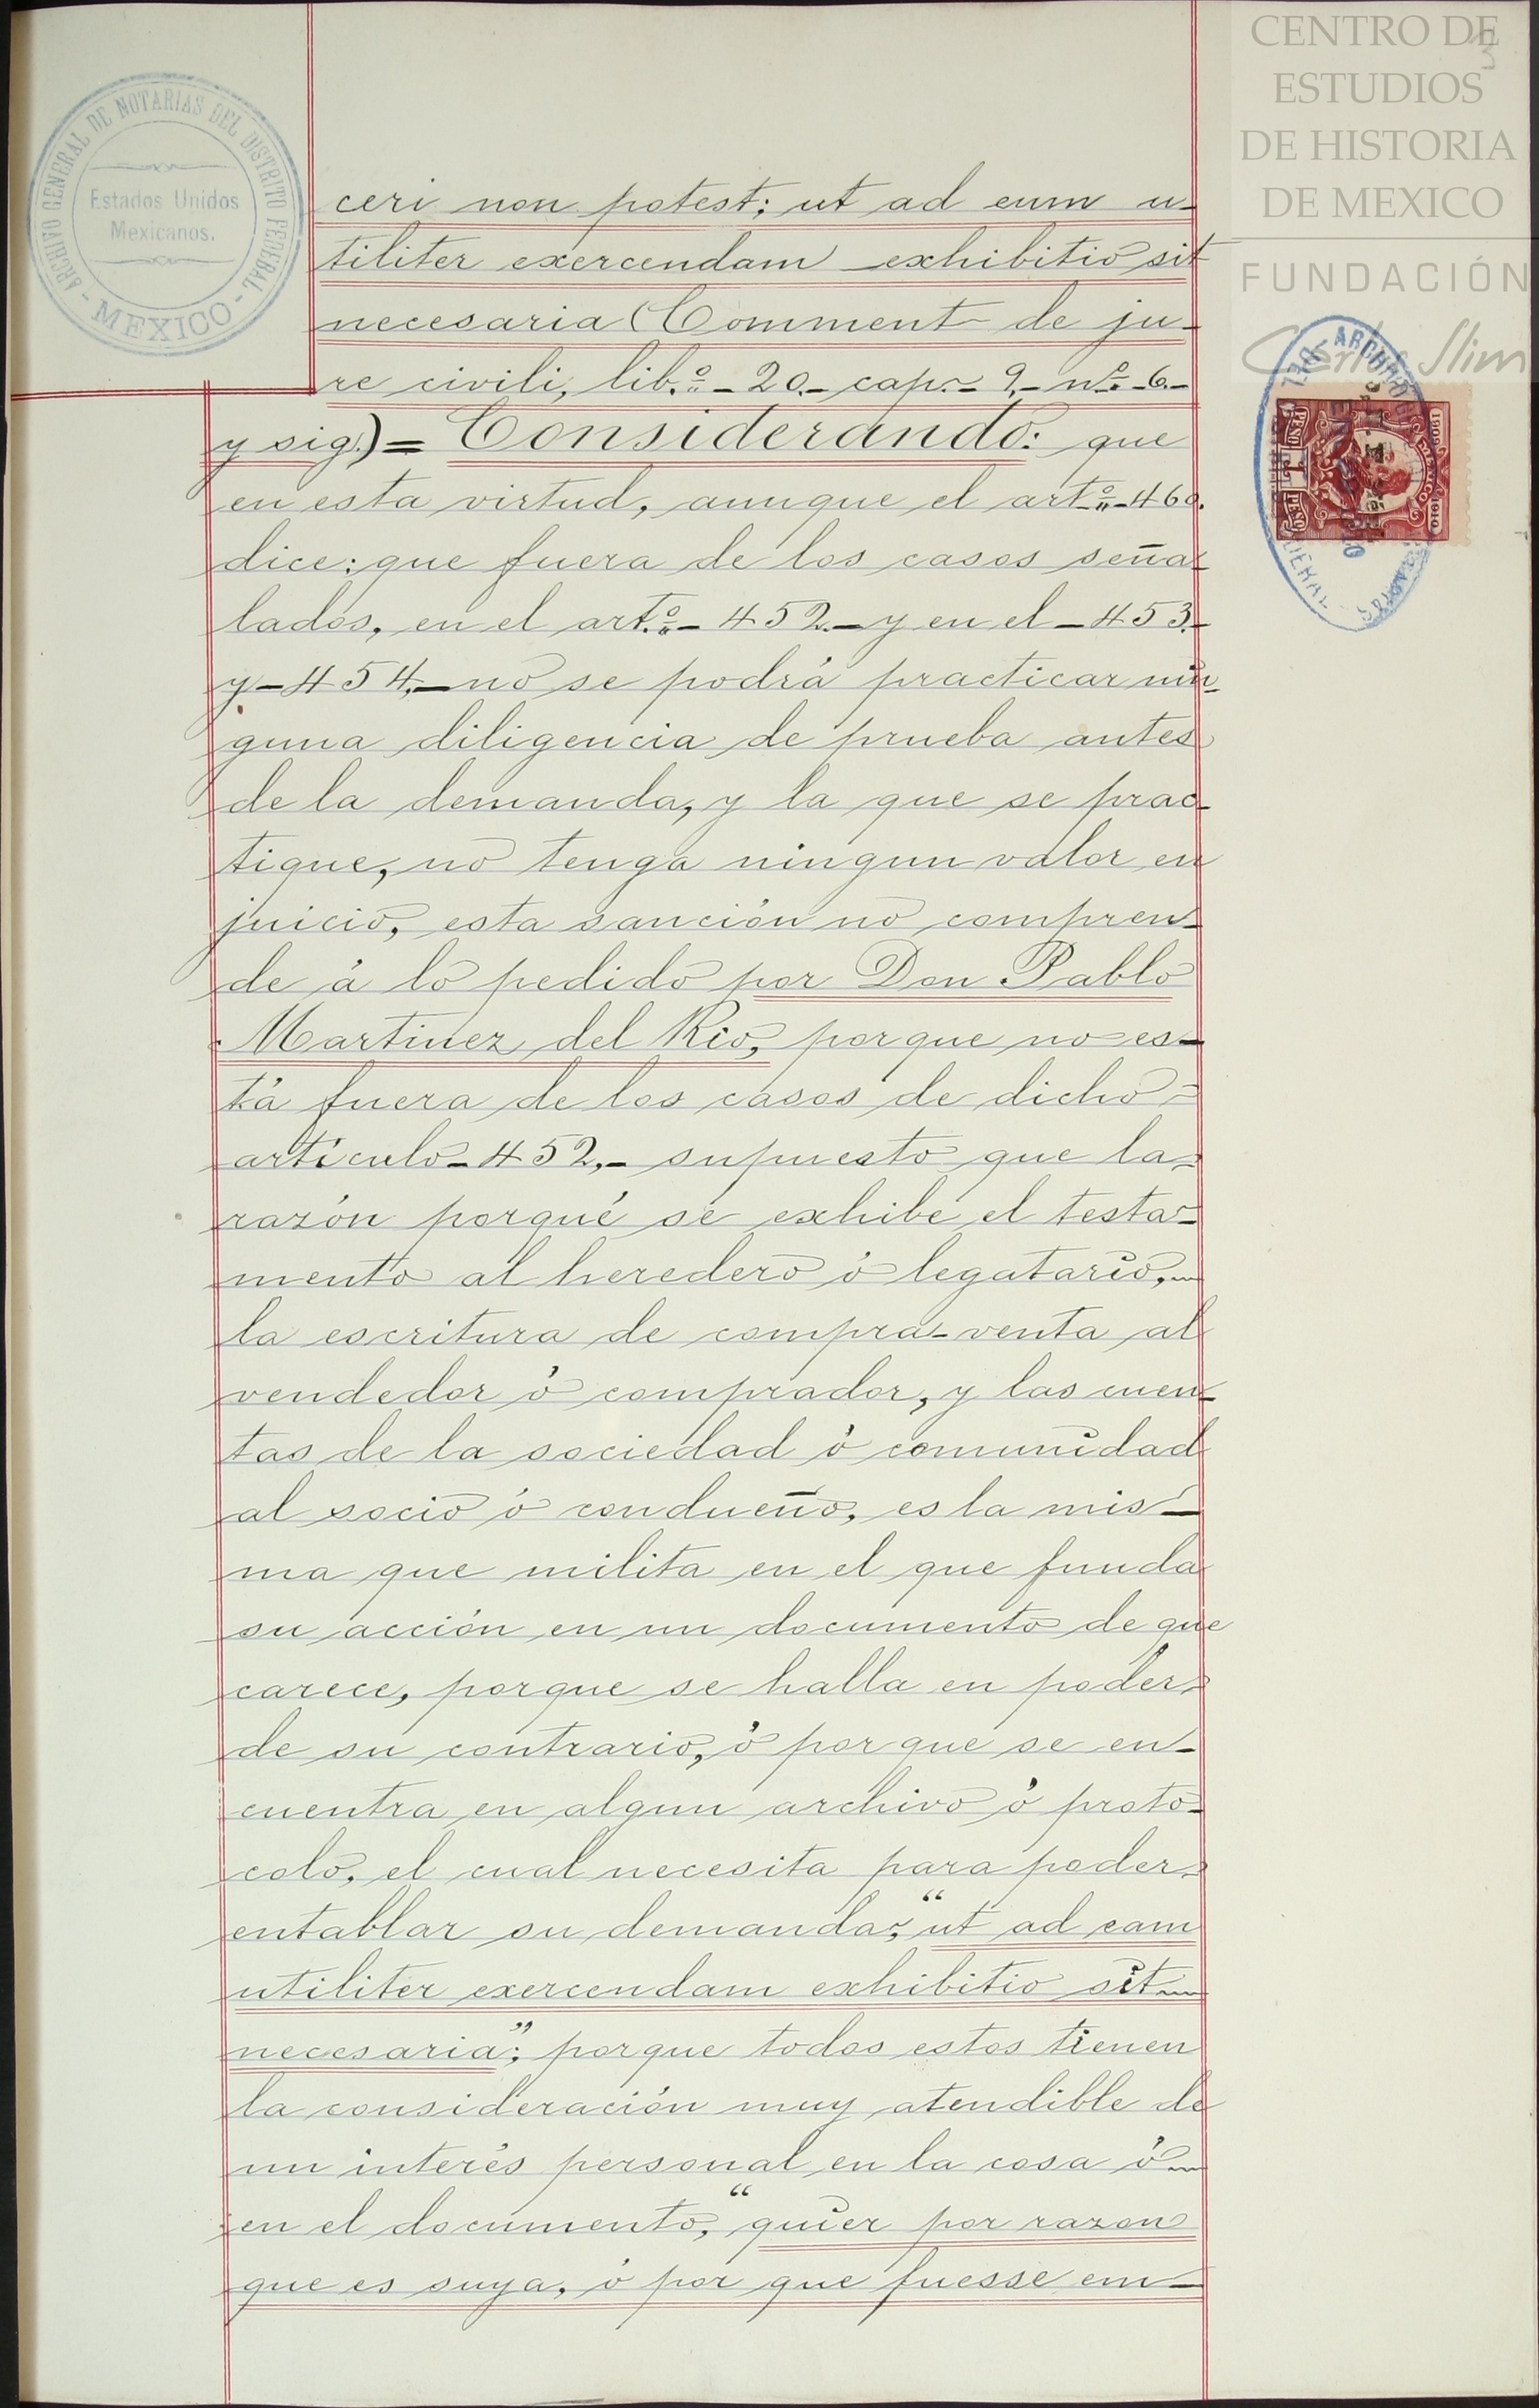 CENTRO DE
ESTUDIOS
DE HISTORIA
DE MEXICO
FUNDACIÓN
Carlos Slim
ARCHIVO GENERAL DE NOTARIAS DEL DISTRITO FEDERAL
Estados Unidos
Mexicanos.
- MEXICO -
ceri non potest; ut ad eum u-
tiliter exercendam exhibitio sit
necesaria (Comment de ju-
re civili, lib.º - 20 - cap. - 9. - nº. - 6. -
y sig.) = Considerando: que
en esta virtud, aunque el artº. - 460.
dice: que fuera de los casos seña-
lados, en el art.º - 452. - y en el - 453. -
y - 454, - no se podrá practicar nin-
guna diligencia de prueba antes
de la demanda, y la que se prac-
tique, no tenga ningun valor en
juicio, esta sanción no compren-
de á lo pedido por Don Pablo
Martinez del Rio, porque no es-
tá fuera de los casos de dicho =
artículo - 452, - supuesto que la-
razón porqué se exhibe el testa-
mento al heredero ó legatario, -
la escritura de compra-venta al
vendedor ó comprador, y las cuen-
tas de la sociedad ó comunidad
al socio ó condueño, es la mis-
ma que milita en el que funda
su acción en un documento de que
carece, porque se halla en poder-
de su contrario, ó porque se en-
cuentra en algun archivo ó proto-
colo, el cual necesita para poder-
entablar su demanda; “ut ad eam
utiliter exercendam exhibitio sit -
necesaria”; porque todos estos tienen
la consideración muy atendible de
un interés personal en la cosa ó -
en el documento, “quier por razon
que es suya, ó por que fuesse em-